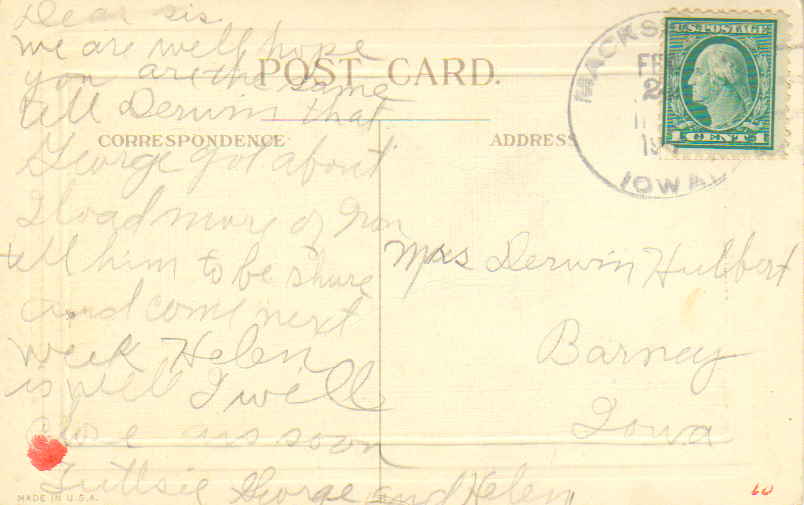 Dear sis.
we are well hope
you are the same
tell Derwin that
George got about
1 load more of Iron
tell him to be shure
and come next
week Helen
is well I will
close ans soon
Tuttsie George and Helen
POST CARD.
CORRESPONDENCE
ADDRESS
MACKS
FE
IOWA
U.S. POSTAGE
1 CENT 1
Mrs Derwin Hubbert
Barney
Iowa
MADE IN U.S.A.